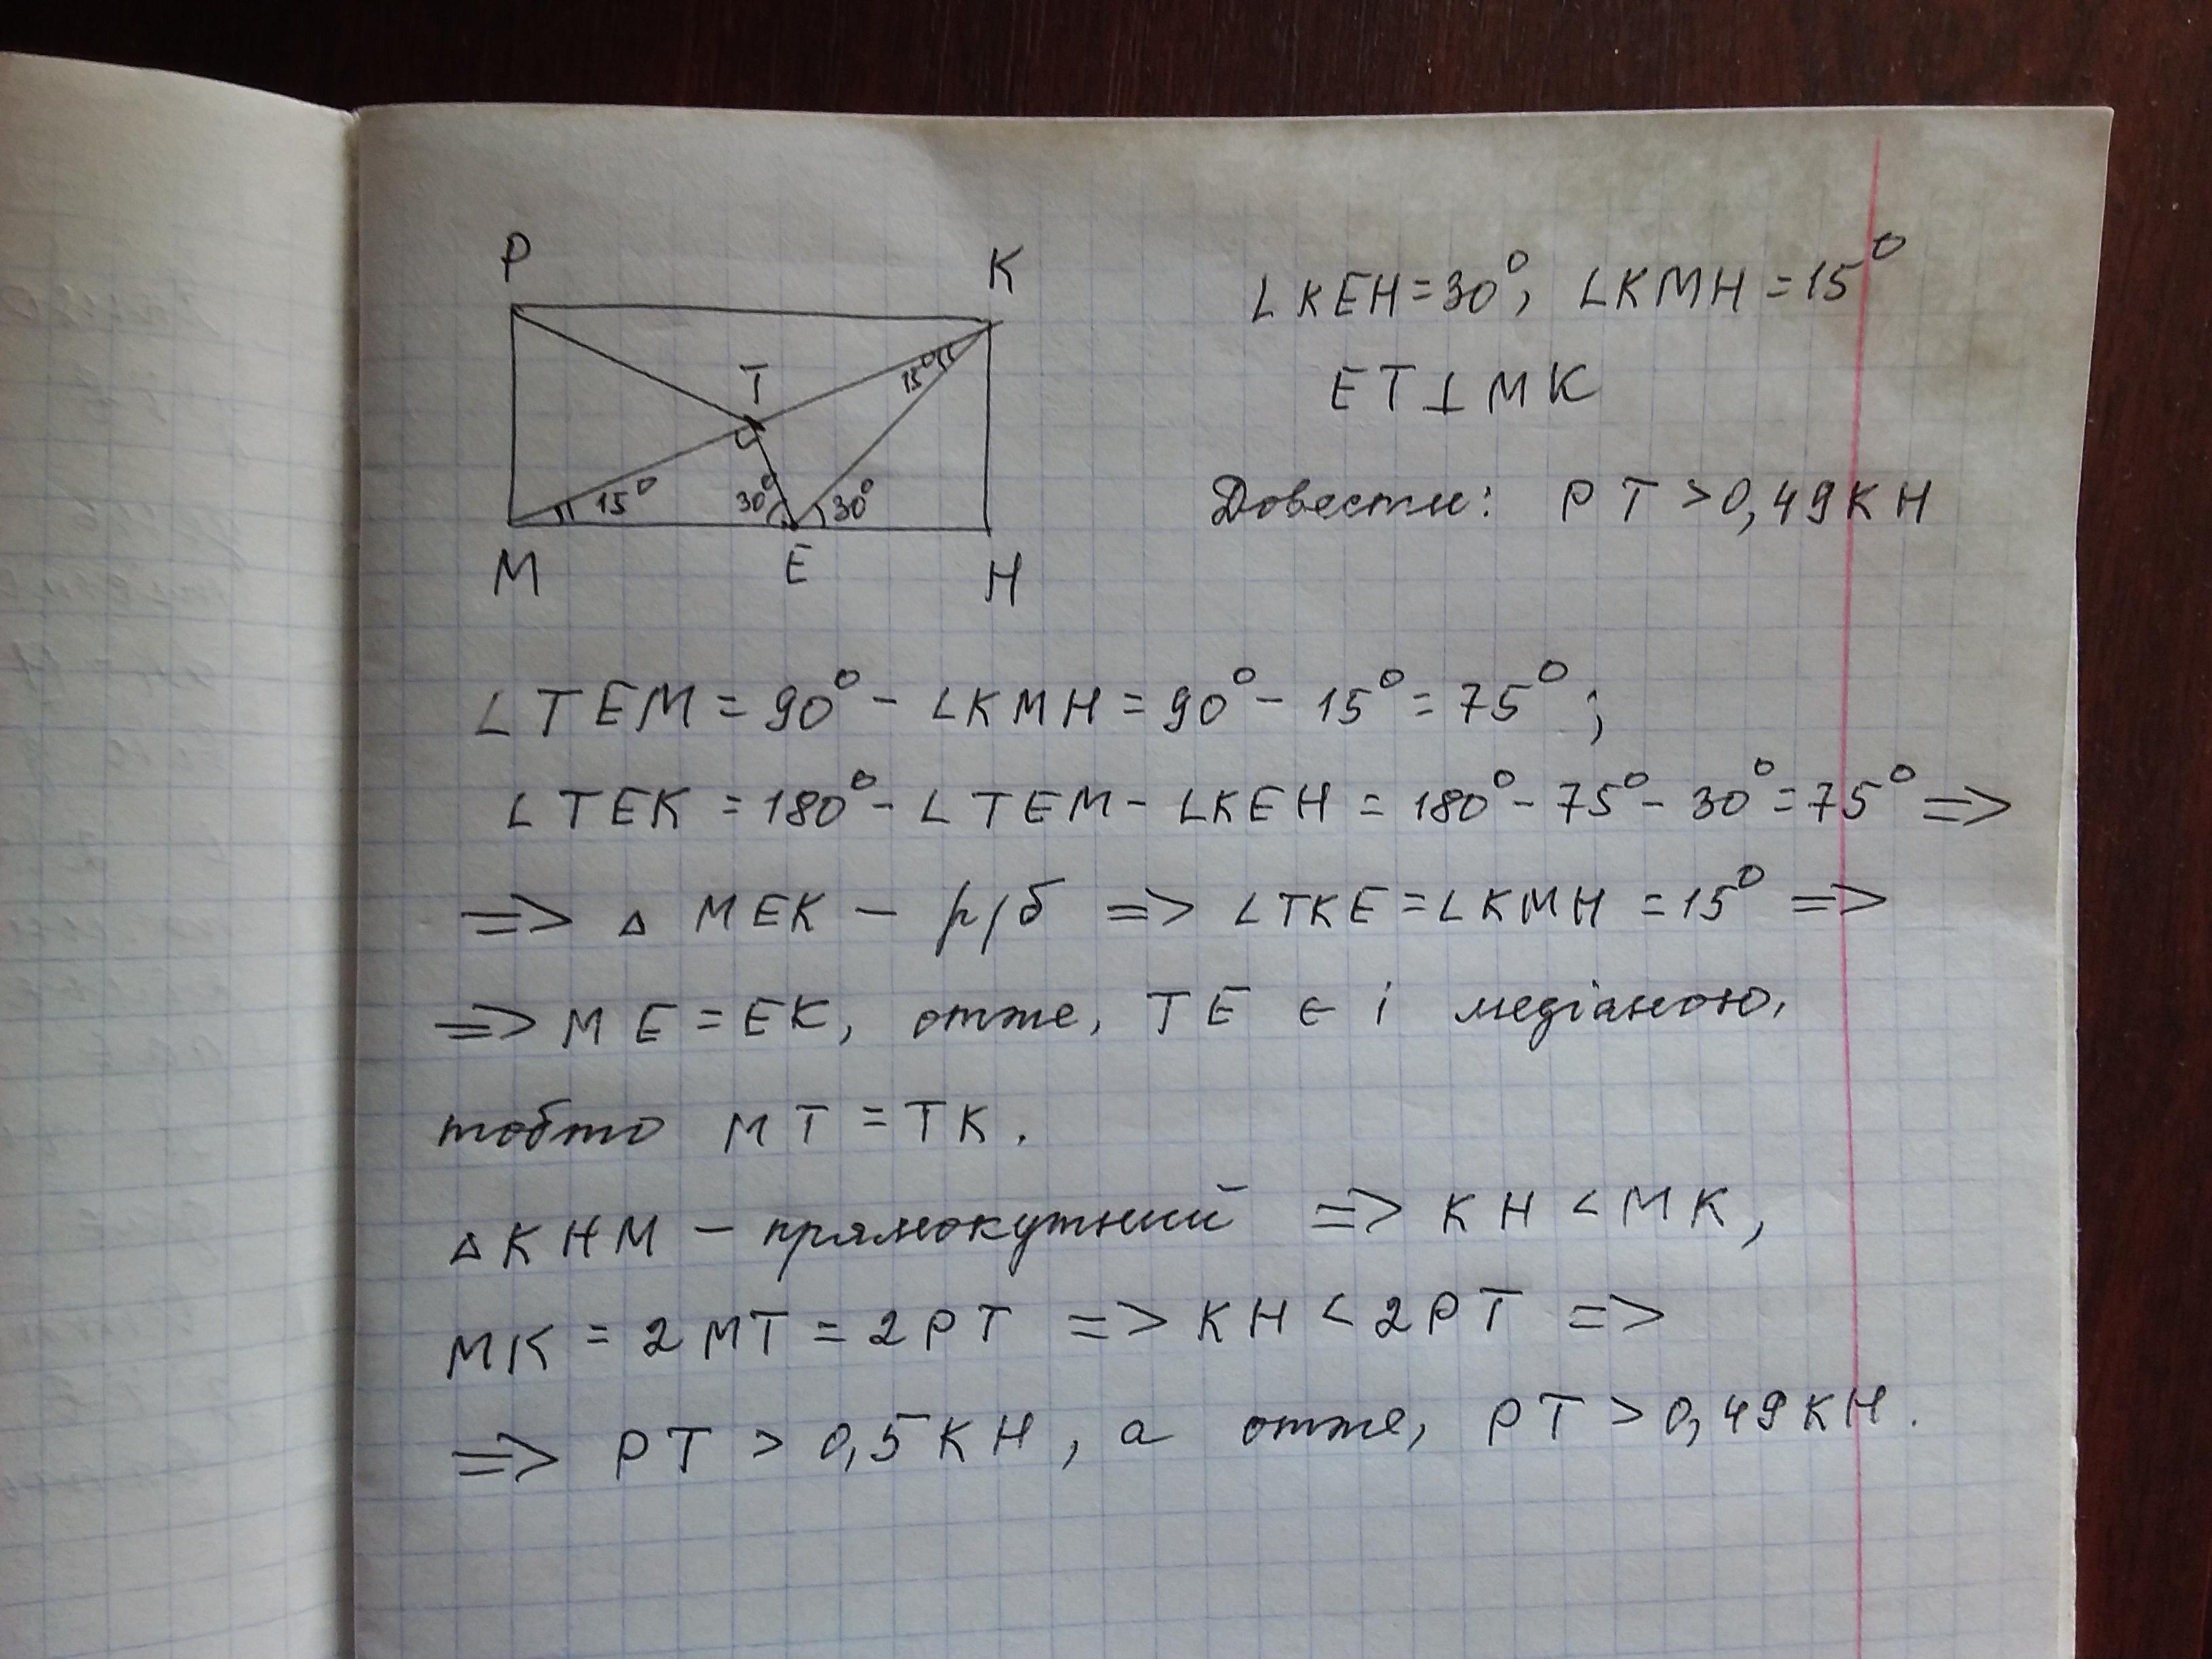 P
K
T
15°
15°
30°
30°
M
E
H
∠KEH=30°; ∠KMH=15°
ET⊥MK
Довести: PT>0,49KH
∠TEM=90°-∠KMH=90°-15°=75°;
∠TEK=180°-∠TEM-∠KEH=180°-75°-30°=75°=>
=> △ MEK – р/б => ∠TKE=∠KMH=15° =>
=> ME=EK, отже, TE є і медіаною,
тобто MT=TK.
△KHM – прямокутний => KH<MK,
MK=2MT=2PT => KH<2PT =>
=> PT > 0,5KH, а отже, PT>0,49KH.